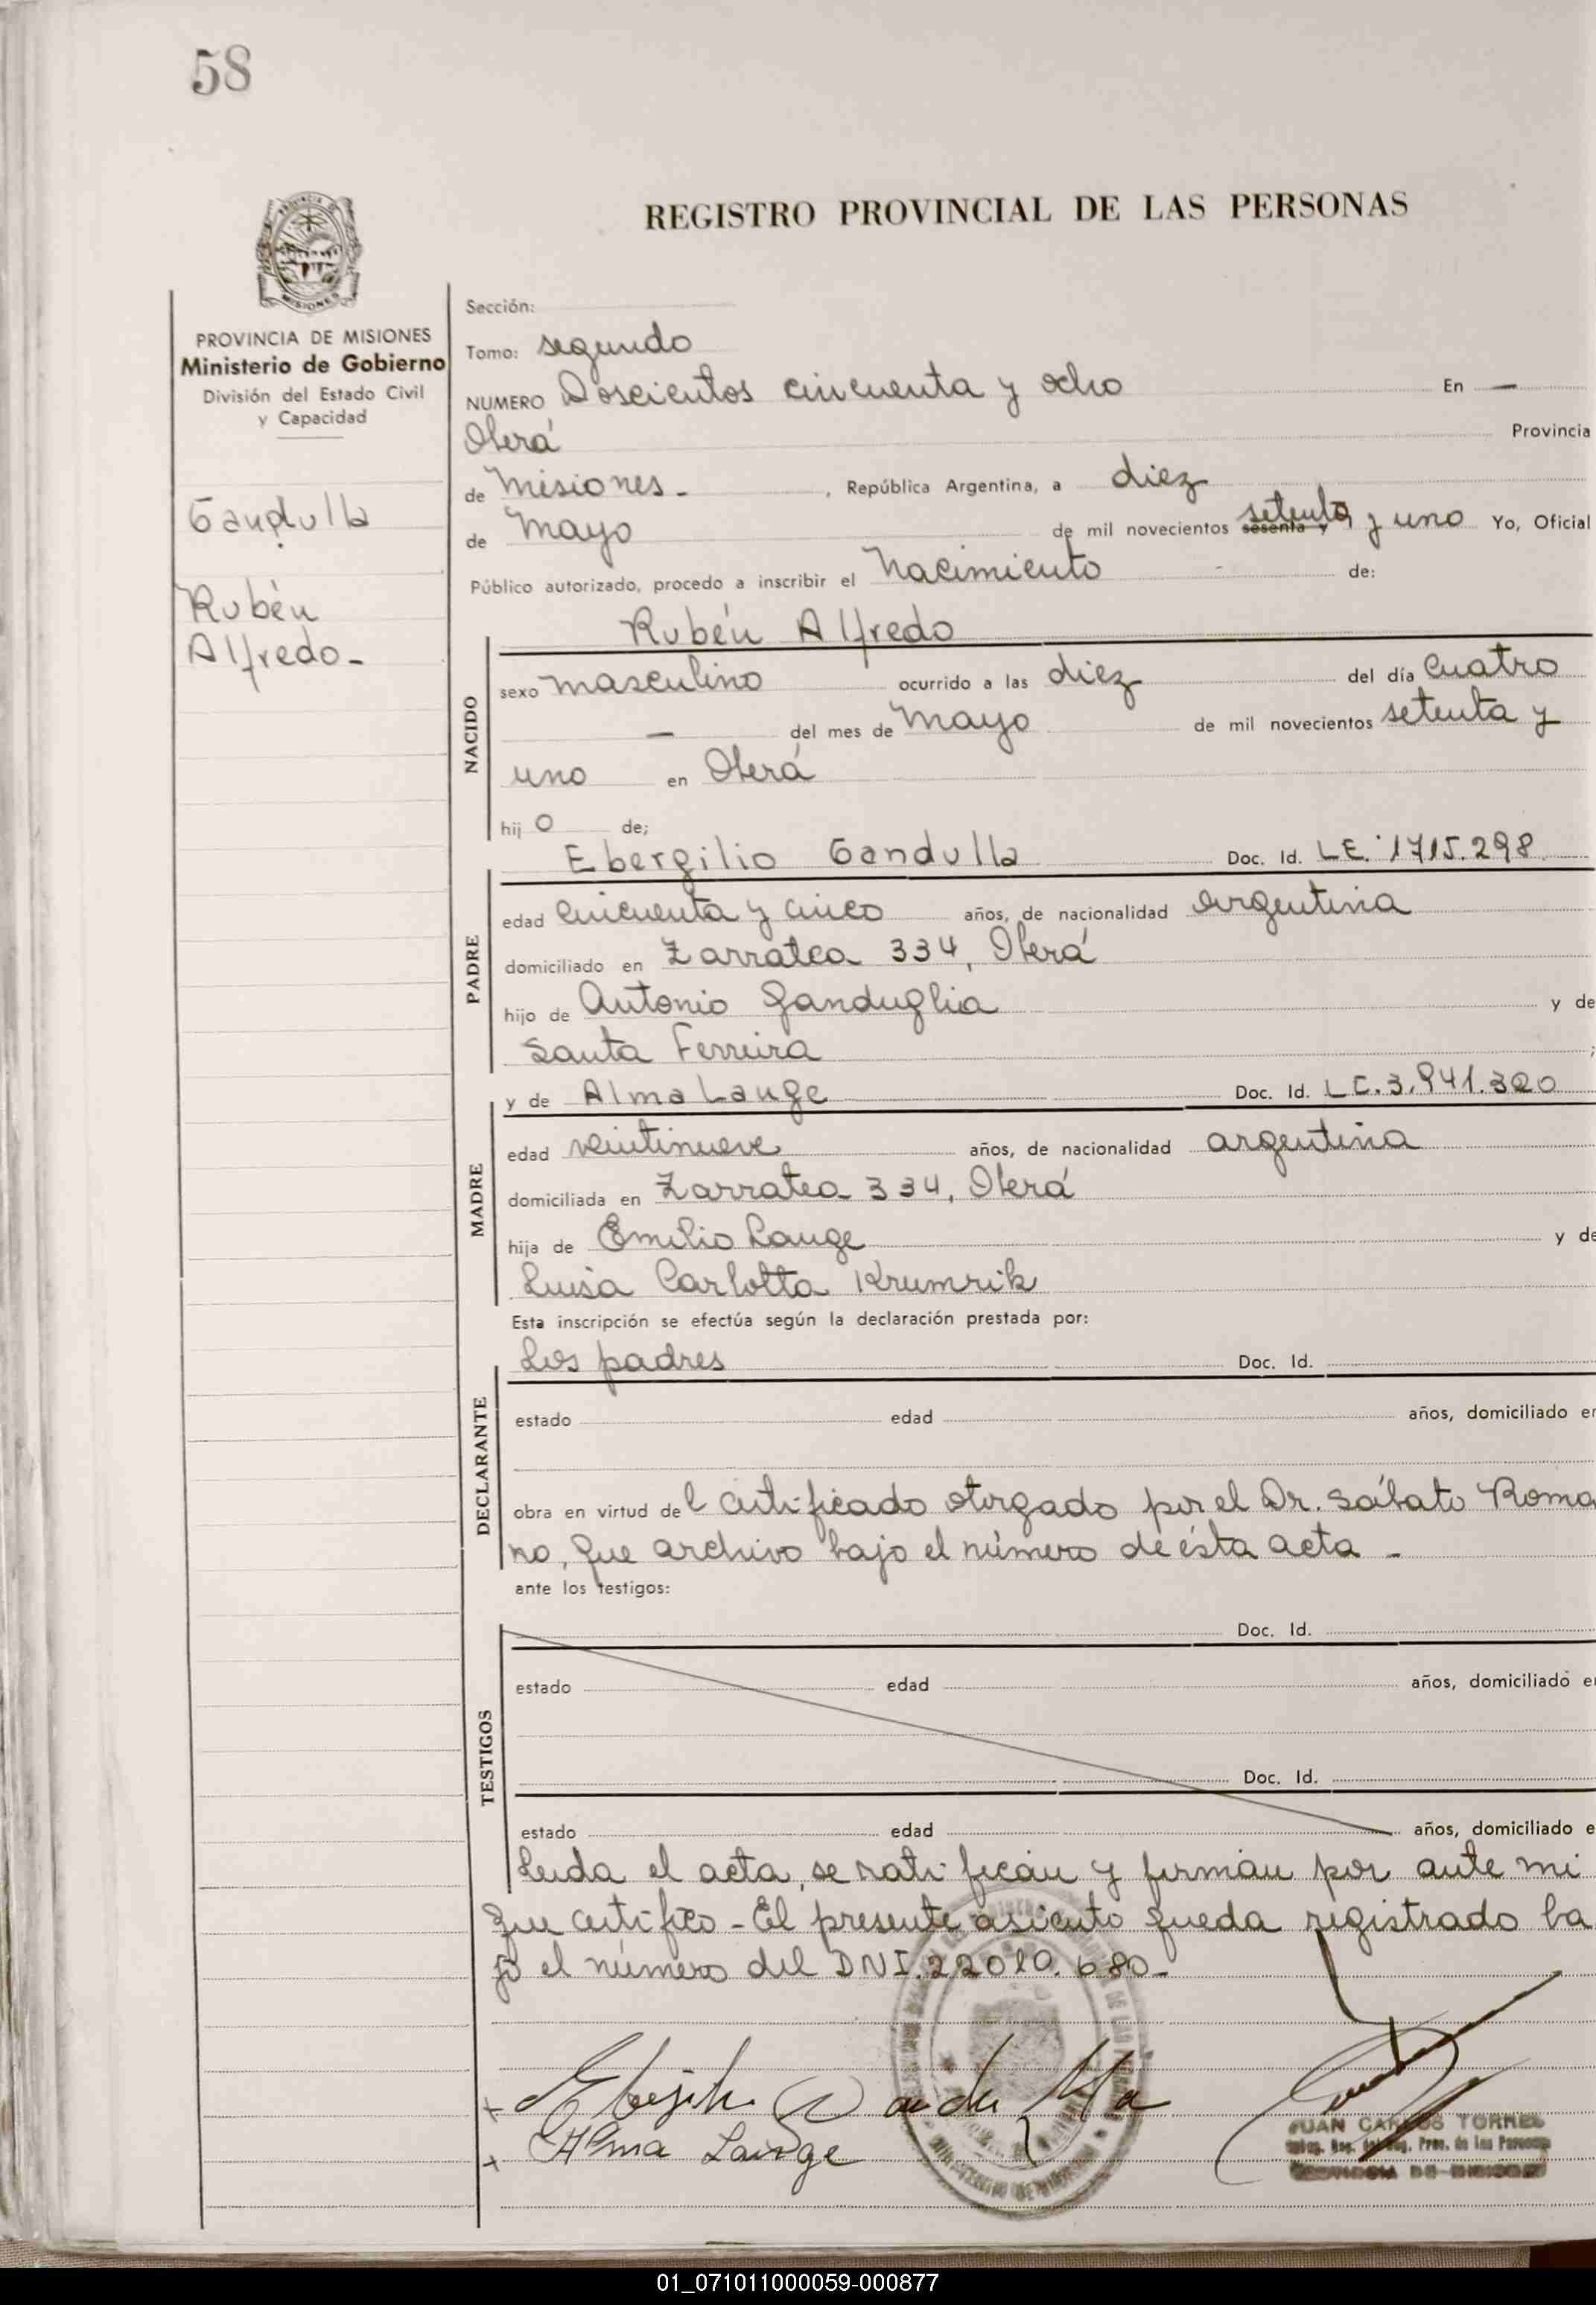 58
REGISTRO PROVINCIAL DE LAS PERSONAS
MISIONES
PROVINCIA DE MISIONES
Ministerio de Gobierno
División del Estado Civil
y Capacidad
Gandulla
Rubén
Alfredo-
Sección:
Tomo: segundo
NUMERO Doscientos cincuenta y ocho En —
Oberá Provincia
de Misiones- , República Argentina, a diez
de Mayo de mil novecientos sesenta y setenta y uno Yo, Oficial
Público autorizado, procedo a inscribir el Nacimiento - de:
Rubén Alfredo
NACIDO
sexo masculino ocurrido a las diez del día Cuatro
— del mes de Mayo de mil novecientos setenta y
uno en Oberá
hij o de;
Ebergilio Gandulla Doc. Id. L.E. 1715.298
PADRE
edad Cincuenta y cinco años, de nacionalidad Argentina
domiciliado en Zarratea 334, Oberá
hijo de Antonio Ganduglia y de
Santa Ferreira ;
y de Alma Lange Doc. Id. L.C. 3.941.320
MADRE
edad veintinueve años, de nacionalidad argentina
domiciliada en Zarratea 334, Oberá
hija de Emilio Lange y de
Luisa Carlotta Krumrik
Esta inscripción se efectúa según la declaración prestada por:
Los padres Doc. Id.
DECLARANTE
estado edad años, domiciliado en
obra en virtud del Certificado otorgado por el Dr. Sábato Roma
no, que archivo bajo el número de ésta acta -
ante los testigos:
TESTIGOS
Doc. Id.
estado edad años, domiciliado en
Doc. Id.
estado edad años, domiciliado e
Leida el acta, se ratifican y firman por ante mi
que certifico - El presente asiento queda registrado ba
jo el número del DNI. 22010.680-
x Ebergilio Gandulla
x Alma Lange
JUAN CARLOS TORRES
Prov. de las Personas
PROVINCIA DE MISIONES
01_071011000059-000877